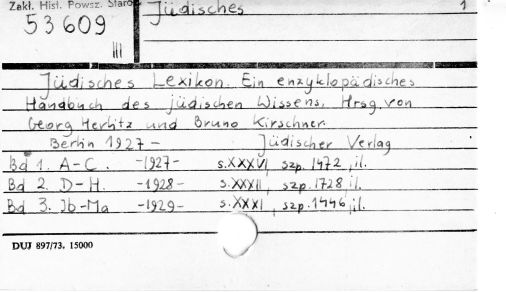 Zakł. Hist. Powsz. Staroż
Jüdisches 1
53609
III
Jüdisches Lexikon. Ein enzyklopädisches
Handbuch des jüdischen Wissens. Hrsg. von
Georg Herlitz und Bruno Kirschner.
Berlin 1927 - Jüdischer Verlag
Bd 1. A-C. -1927- s.XXXVI, szp.1472, il.
Bd 2. D-H. -1928- s.XXXII, szp.1728, il.
Bd 3. Ib-Ma -1929- s.XXXI, szp.1446, il.
DUJ 897/73. 15000